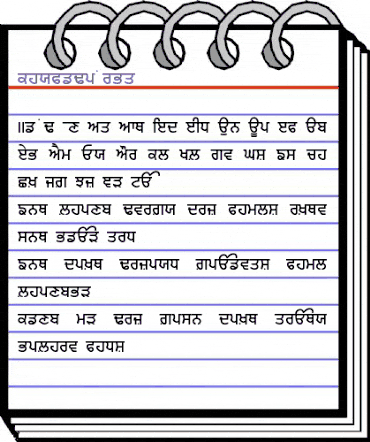 ਕਹਯਫਡਢਪਂ ਰਭਤ
॥ਡਂ ਢ ਣ ਅਤ ਆਥ ਇਦ ਈਧ ਉਨ ਊਪ ਏਫ ਓਬ
ਏਭ ਐਮ ਓਯ ਔਰ ਕਲ ਖਲ਼ ਗਵ ਘਸ਼ ਙਸ ਚਹ
ਛਖ਼ ਜਗ ਝਜ਼ ਞੜ ਟੴ
ਙਨਥ ਲ਼ਹਪਣਬ ਢਵਰਗਯ ਦਰਜ਼ ਫਹਮਲਸ਼ ਰਖ਼ਥਵ
ਸਨਥ ਭਡੴੜੇ ਤਰਧ
ਙਨਥ ਦਪਖ਼ਥ ਢਰਜ਼ਪਯਧ ਗ਼ਪੴਡੇਵਤਸ਼ ਫਹਮਲ
ਲ਼ਹਪਣਬਭੜ
ਕਡਣਬ ਮੜ ਢਰਜ਼ ਗ਼ਪਸਨ ਦਪਖ਼ਥ ਤਰੴਥੇਯ
ਭਪਲ਼ਹਰਵ ਫਹਧਸ਼